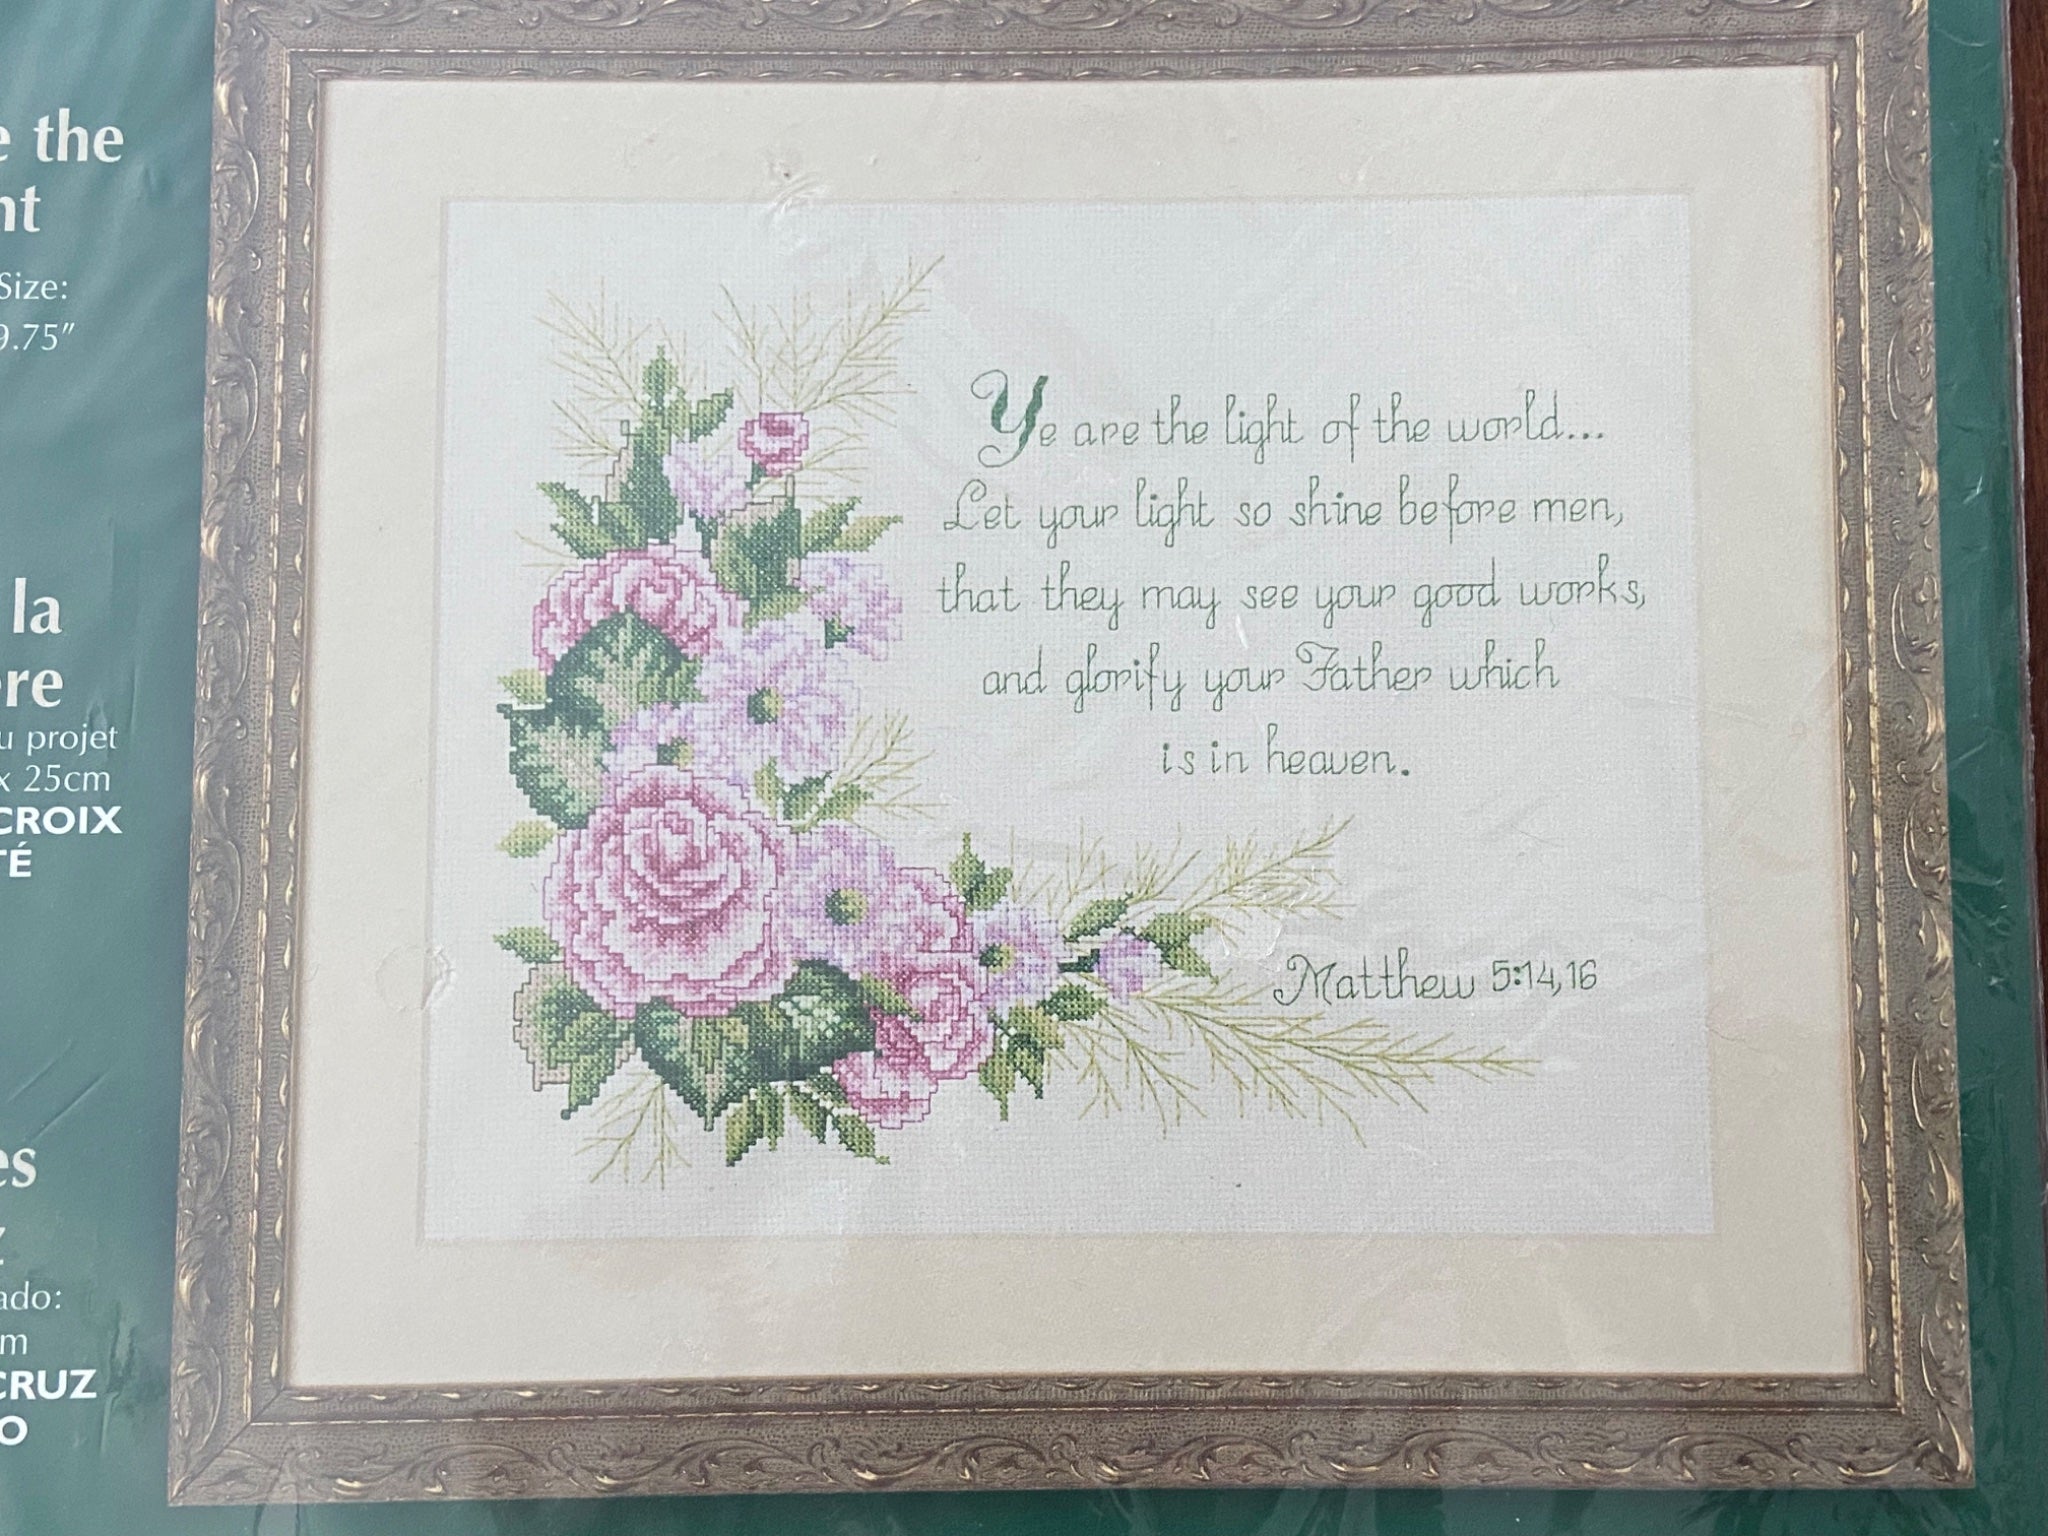 the
Size:
9.75"
la
projet
x 25cm
CROIX
CRUZ
Ye are the light of the world...
Let your light so shine before men,
that they may see your good works,
and glorify your Father which
is in heaven.
Matthew 5:14,16